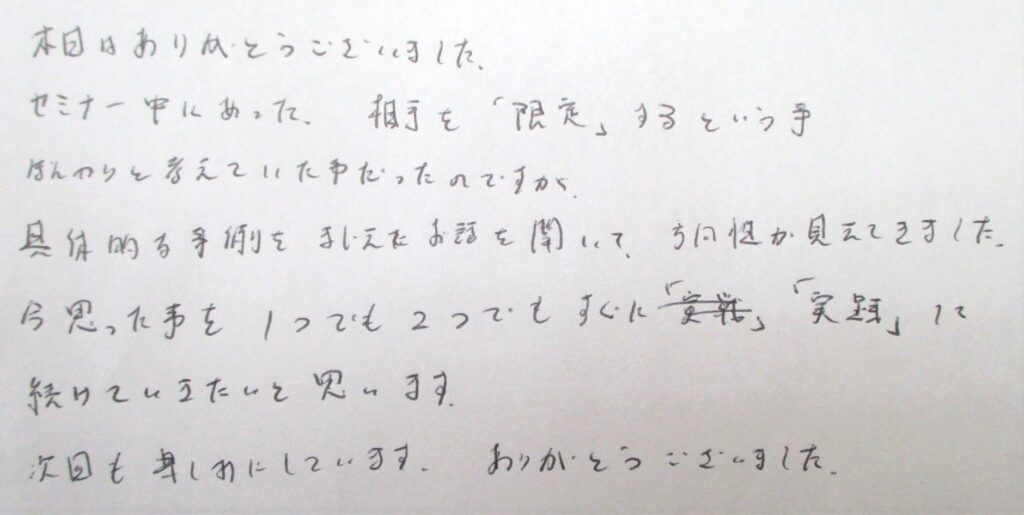 本日はありがとうございました。
セミナー中にあった、相手を「限定」するという事
ぼんやりと考えていた事だったのですが、
具体的な事例をまじえたお話を聞いて、方向性が見えてきました。
今思った事を1つでも2つでもすぐに「実戦」「実践」して
続けていきたいと思います。
次回も楽しみにしています。ありがとうございました。